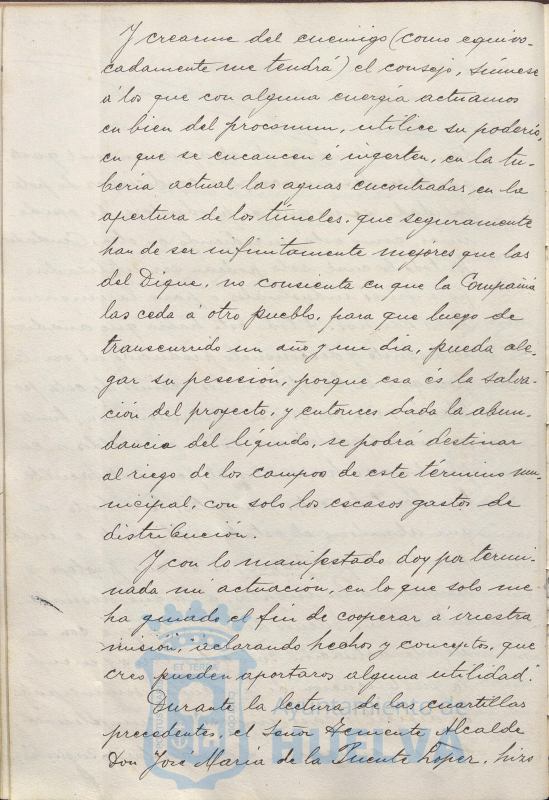 Y crearme del enemigo (como equivo-
cadamente me tendrá) el consejo, súmese
á los que con alguna energía actuamos
en bien del procomun, utilice su poderio,
en que se encaucen é ingerten, en la tu-
beria actual las aguas encontradas en la
apertura de los túneles, que seguramente
han de ser infinitamente mejores que las
del Dique, no consienta en que la Compañia
las ceda á otro pueblo, para que luego de
transcurrido un año y un dia, pueda ale-
gar su posesión, porque esa és la salva-
ción del proyecto, y entonces dada la abun-
dancia del líquido, se podrá destinar
al riego de los campos de este término mu-
nicipal, con solo los escasos gastos de
distribución.
Y con lo manifestado doy por termi-
nada mi actuación, en lo que solo me
ha guiado el fin de cooperar á vuestra
misión, aclarando hechos y conceptos, que
creo pueden aportaros alguna utilidad".
Durante la lectura de las cuartillas
precedentes, el Señor Teniente Alcalde
Don José María de la Puente López, hizo
Ayuntamiento de
HUELVA